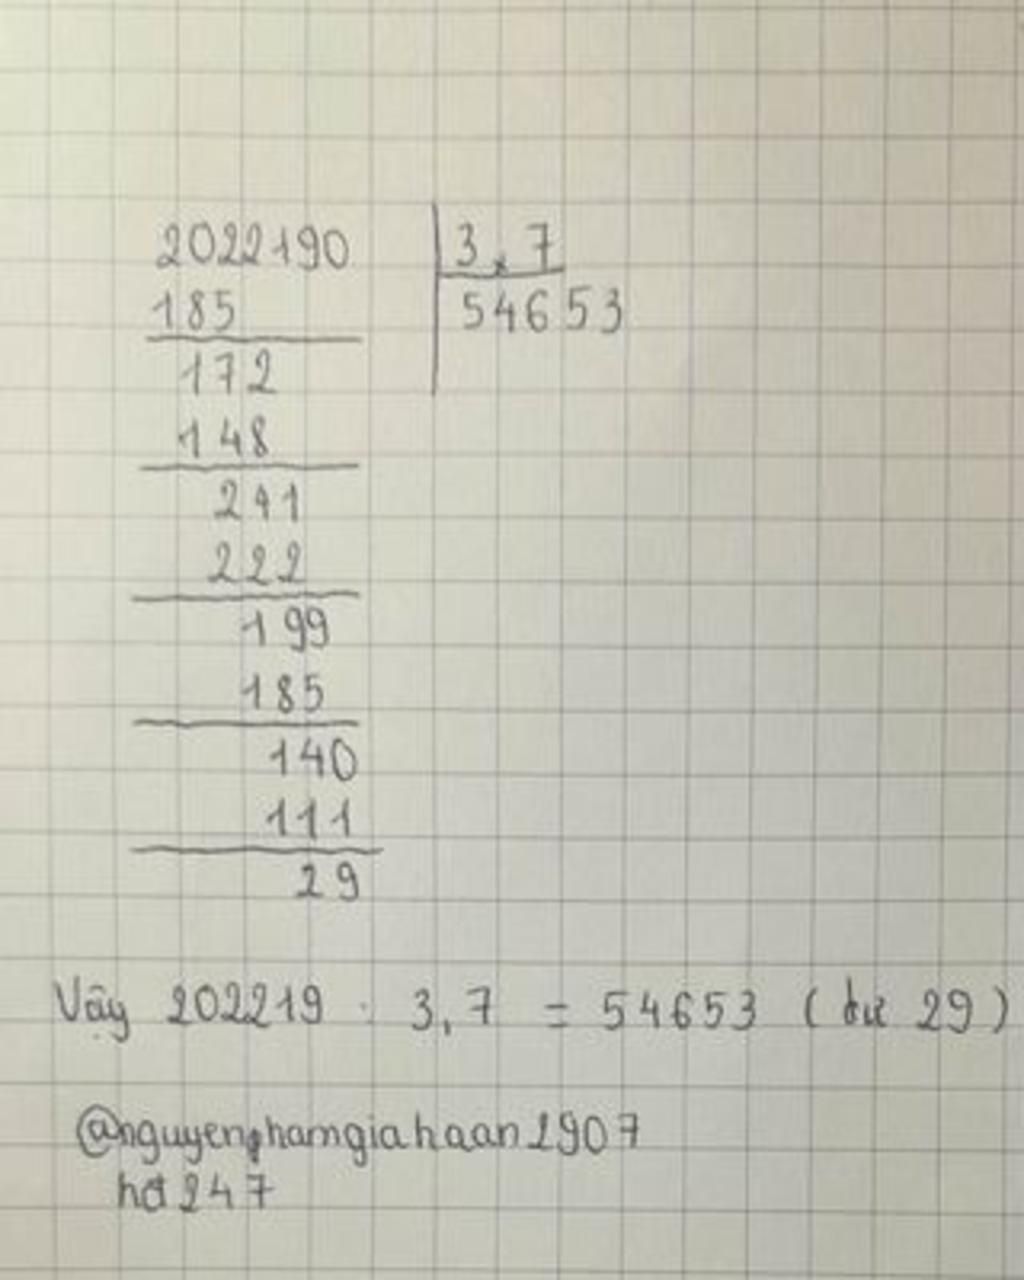 2022190 3,7
185 54653
172
148
241
222
199
185
140
111
29
Vậy 202219 : 3,7 = 54653 (dư 29)
@nguyenphamgiahaan1907
hd247